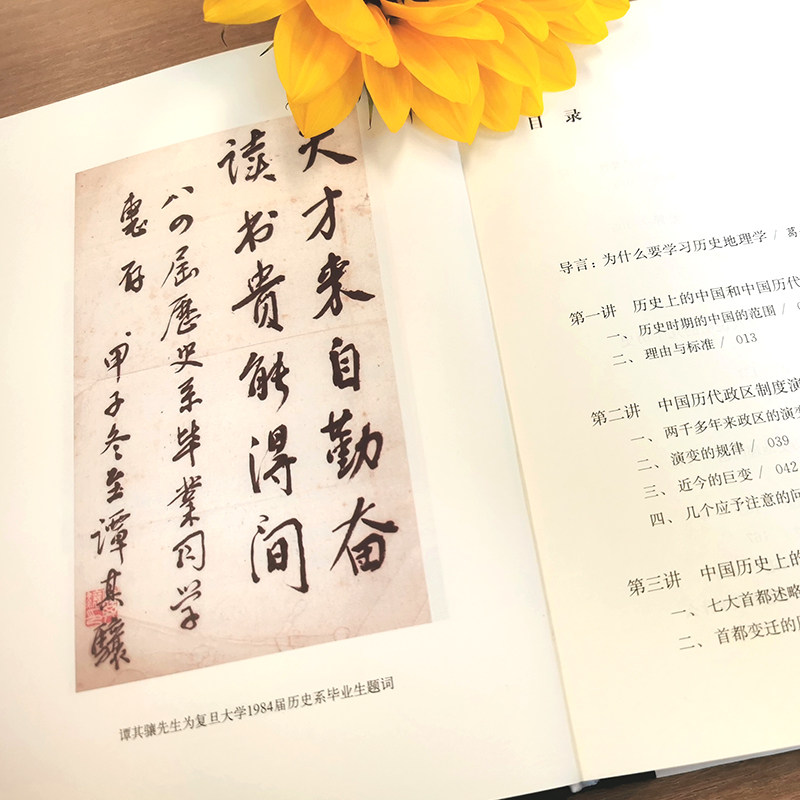 天才来自勤奋
读书贵能得间
八四届歷史系毕業同学
惠存
甲子冬至谭其驤
谭其骧先生为复旦大学1984届历史系毕业生题词
目 录
导言：为什么要学习历史地理学 / 葛
第一讲 历史上的中国和中国历代
一、历史时期的中国的范围 /
二、理由与标准 / 013
第二讲 中国历代政区制度演
一、两千多年来政区的演
二、演变的规律 / 039
三、近今的巨变 / 042
四、几个应予注意的问
第三讲 中国历史上的
一、七大首都述略
二、首都变迁的